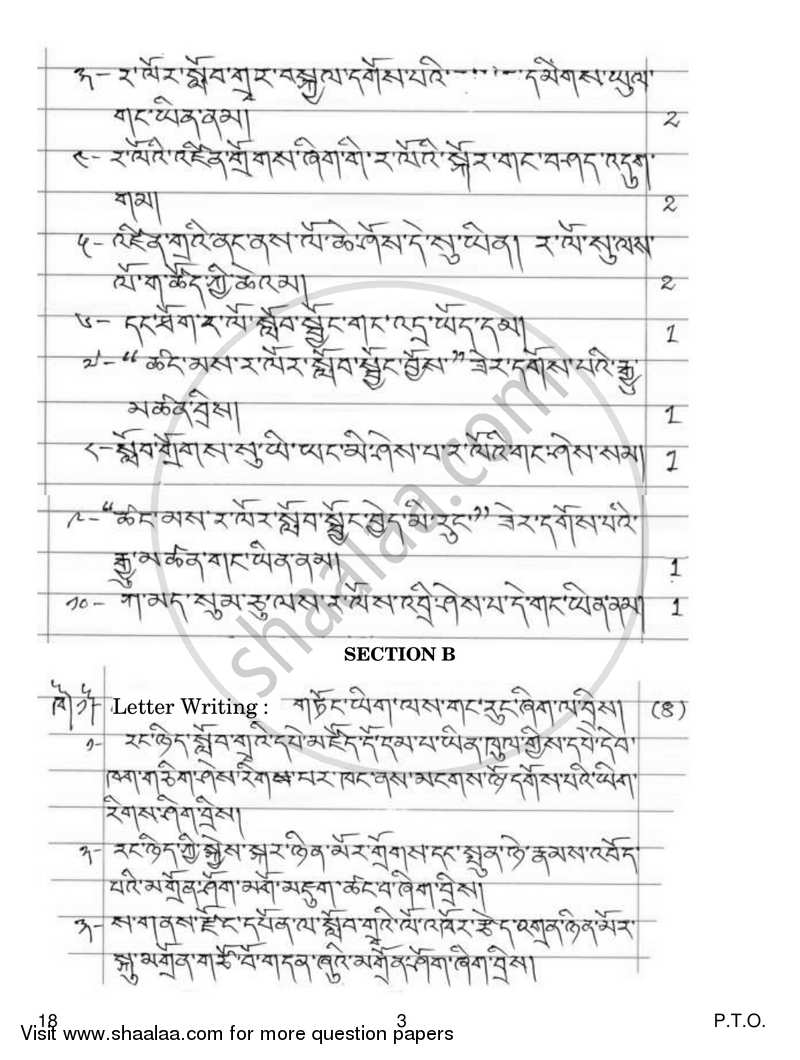 ༣- ར་ལོར་སློབ་གྲྭར་བསྐྱལ་དགོས་པའི་----་དམིགས་ཡུལ་
གང་ཡིན་ནམ། 2
༤- ར་ལོའི་འཛིན་གྲོགས་ཞིག་གི་ར་ལོའི་སྐོར་གང་བཤད་འདུག་
གམ། 2
༥- འཛིན་གྲྭའི་ནང་ནས་ལོ་ཆེ་ཤོས་དེ་སུ་ཡིན། ར་ལོ་སུ་ལས་
ལོ་ག་ཚོད་ཀྱི་ཆེའམ། 2
༦- དང་ཐོག་ར་ལོ་སློབ་སྦྱོང་གང་འདྲ་ཡོད་དམ། 1
༧- “ཚང་མས་ར་ལོར་སློབ་སྦྱོང་བྱོས” ཟེར་དགོས་པའི་རྒྱུ་
མཚན་བྲིས། 1
༨- སློབ་གྲོགས་སུ་ཡི་ཡང་མི་ཤེས་པ་ར་ལོའི་གང་ཤེས་སམ། 1
༩- “ཚང་མས་ར་ལོར་སློབ་སྦྱོང་བྱེད་མི་རུང” ཟེར་དགོས་པའི་
རྒྱུ་མཚན་གང་ཡིན་ནམ། 1
༡༠- ཀ་མད་སུམ་ཅུ་ལས་ར་ལོས་འབྲི་ཤེས་པ་དེ་གང་ཡིན་ནམ། 1
SECTION B
Letter Writing : གཏོང་ཡིག་ལས་གང་རུང་ཞིག་ལ་བྲིས། (8)
༡- རང་ཉིད་སློབ་གྲྭའི་དཔེ་མཛོད་དོ་དམ་པ་ཡིན་ཁུལ་གྱིས་དཔེ་དེབ་
ཁག་གཅིག་ཤེས་རིག་པར་ཁང་ནས་མངགས་ཉོ་དགོས་པའི་ཡིག་
རིགས་ཤིག་བྲིས།
༢- རང་ཉིད་ཀྱི་སྐྱེས་སྐར་ཉིན་མོར་གྲོགས་དང་སྤུན་ཉེ་རྣམས་འབོད་
པའི་མགྲོན་ཤོག་མགོ་མཇུག་ཚང་བ་ཞིག་བྲིས།
༣- ས་གནས་རྫོང་དཔོན་ལ་སློབ་གྲྭའི་ལོ་འཁོར་རྩེད་འགྲན་ཉིན་མོར་
སྐུ་མགྲོན་གཙོ་བོ་གདན་ཞུའི་མགྲོན་ཤོག་ཞིག་བྲིས།
18 3 P.T.O.
Visit www.shaalaa.com for more question papers
shaalaa.com